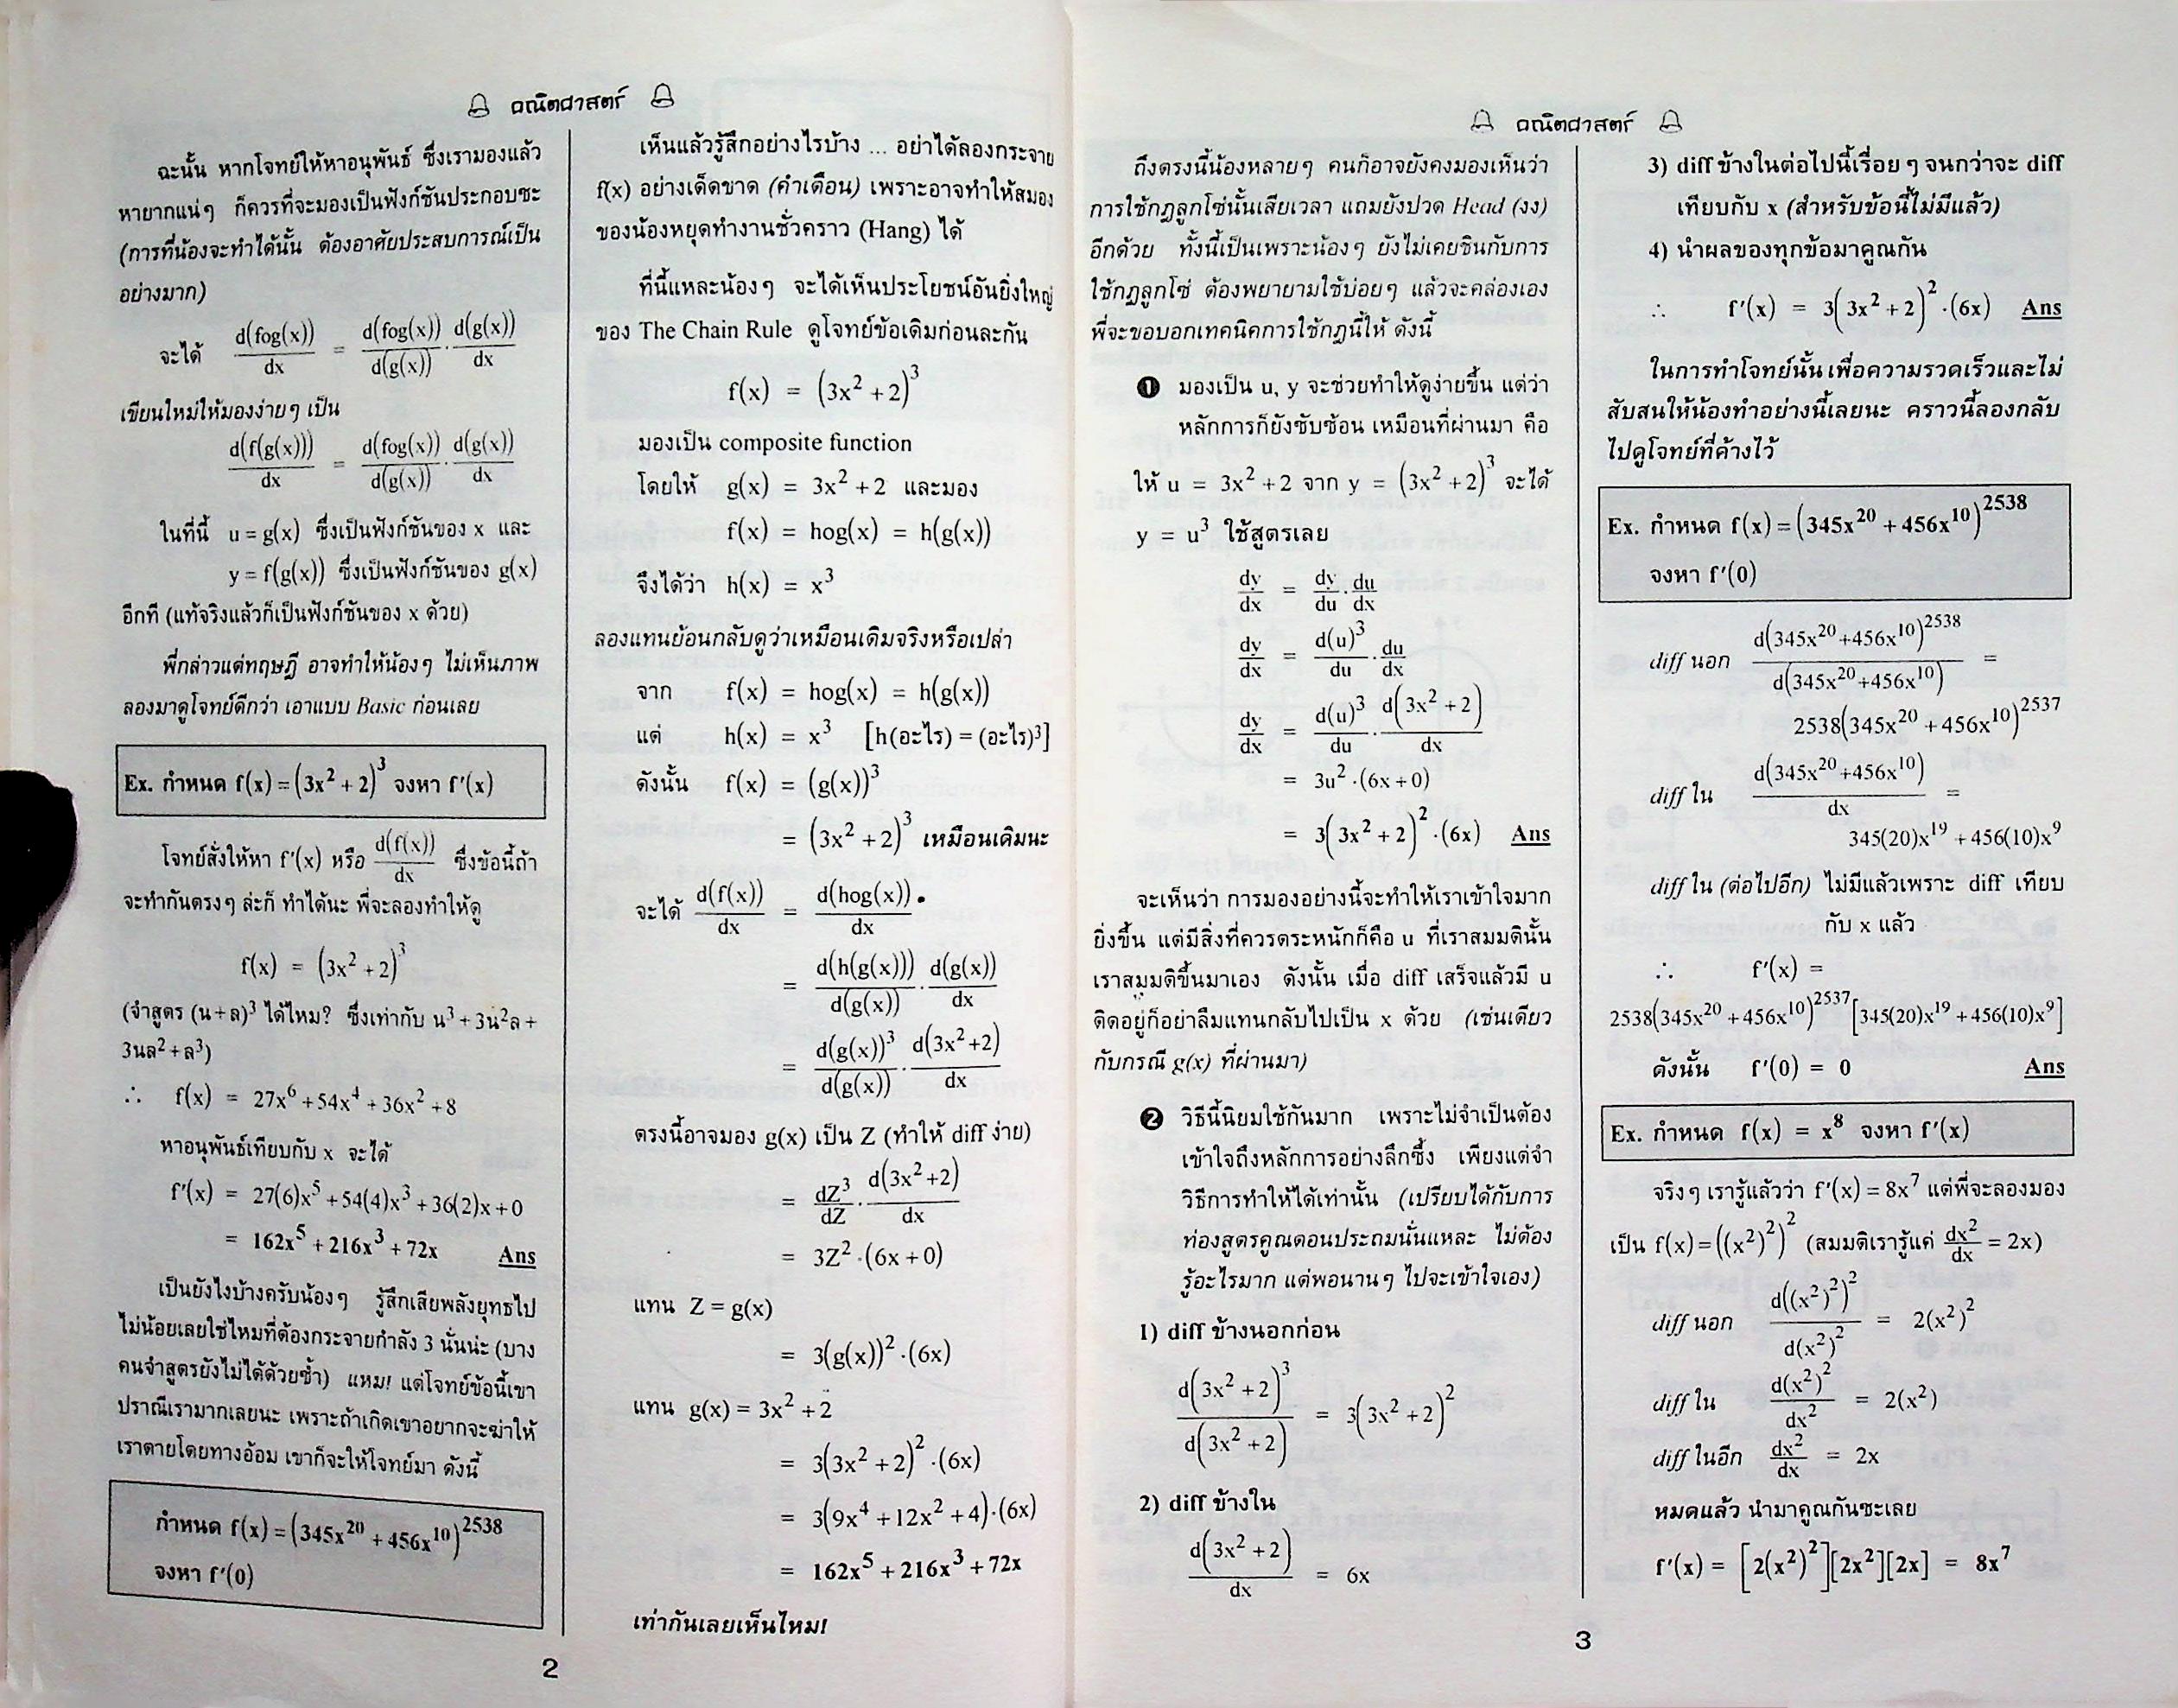 คณิตศาสตร์
ฉะนั้น หากโจทย์ให้หาอนุพันธ์ ซึ่งเรามองแล้ว
หายากแน่ๆ ก็ควรที่จะมองเป็นฟังก์ชันประกอบซะ
(การที่น้องจะทำได้นั้น ต้องอาศัยประสบการณ์เป็น
อย่างมาก)
จะได้ d(fog(x))/dx = d(fog(x))/d(g(x)) · d(g(x))/dx
เขียนใหม่ให้มองง่ายๆ เป็น
d(f(g(x)))/dx = d(fog(x))/d(g(x)) · d(g(x))/dx
ในที่นี้ u = g(x) ซึ่งเป็นฟังก์ชันของ x และ
y = f(g(x)) ซึ่งเป็นฟังก์ชันของ g(x)
อีกที (แท้จริงแล้วก็เป็นฟังก์ชันของ x ด้วย)
พี่กล่าวแต่ทฤษฎี อาจทำให้น้องๆ ไม่เห็นภาพ
ลองมาดูโจทย์ดีกว่า เอาแบบ Basic ก่อนเลย
Ex. กำหนด f(x) = (3x² + 2)³ จงหา f′(x)
โจทย์สั่งให้หา f′(x) หรือ d(f(x))/dx ซึ่งข้อนี้ถ้า
จะทำกันตรงๆ ล่ะก็ ทำได้นะ พี่จะลองทำให้ดู
f(x) = (3x² + 2)³
(จำสูตร (น+ล)³ ได้ไหม? ซึ่งเท่ากับ น³ + 3น²ล +
3นล² + ล³)
∴ f(x) = 27x⁶ + 54x⁴ + 36x² + 8
หาอนุพันธ์เทียบกับ x จะได้
f′(x) = 27(6)x⁵ + 54(4)x³ + 36(2)x + 0
= 162x⁵ + 216x³ + 72x Ans
เป็นยังไงบ้างครับน้องๆ รู้สึกเสียพลังยุทธไป
ไม่น้อยเลยใช่ไหมที่ต้องกระจายกำลัง 3 นั่นน่ะ (บาง
คนจำสูตรยังไม่ได้ด้วยซ้ำ) แหม! แต่โจทย์ข้อนี้เขา
ปราณีเรามากเลยนะ เพราะถ้าเกิดเขาอยากจะฆ่าให้
เราตายโดยทางอ้อม เขาก็จะให้โจทย์มา ดังนี้
กำหนด f(x) = (345x²⁰ + 456x¹⁰)²⁵³⁸
จงหา f′(0)
เห็นแล้วรู้สึกอย่างไรบ้าง ... อย่าได้ลองกระจาย
f(x) อย่างเด็ดขาด (คำเตือน) เพราะอาจทำให้สมอง
ของน้องหยุดทำงานชั่วคราว (Hang) ได้
ที่นี้แหละน้องๆ จะได้เห็นประโยชน์อันยิ่งใหญ่
ของ The Chain Rule ดูโจทย์ข้อเดิมก่อนละกัน
f(x) = (3x² + 2)³
มองเป็น composite function
โดยให้ g(x) = 3x² + 2 และมอง
f(x) = hog(x) = h(g(x))
จึงได้ว่า h(x) = x³
ลองแทนย้อนกลับดูว่าเหมือนเดิมจริงหรือเปล่า
จาก f(x) = hog(x) = h(g(x))
แต่ h(x) = x³ [h(อะไร) = (อะไร)³]
ดังนั้น f(x) = (g(x))³
= (3x² + 2)³ เหมือนเดิมนะ
จะได้ d(f(x))/dx = d(hog(x))/dx
= d(h(g(x)))/d(g(x)) · d(g(x))/dx
= d(g(x))³/d(g(x)) · d(3x²+2)/dx
ตรงนี้อาจมอง g(x) เป็น Z (ทำให้ diff ง่าย)
= dZ³/dZ · d(3x²+2)/dx
= 3Z² · (6x + 0)
แทน Z = g(x)
= 3(g(x))² · (6x)
แทน g(x) = 3x² + 2
= 3(3x² + 2)² · (6x)
= 3(9x⁴ + 12x² + 4) · (6x)
= 162x⁵ + 216x³ + 72x
เท่ากันเลยเห็นไหม!
2
คณิตศาสตร์
ถึงตรงนี้น้องหลายๆ คนก็อาจยังคงมองเห็นว่า
การใช้กฎลูกโซ่นั้นเสียเวลา แถมยังปวด Head (งง)
อีกด้วย ทั้งนี้เป็นเพราะน้องๆ ยังไม่เคยชินกับการ
ใช้กฎลูกโซ่ ต้องพยายามใช้บ่อยๆ แล้วจะคล่องเอง
พี่จะขอบอกเทคนิคการใช้กฎนี้ให้ ดังนี้
❶ มองเป็น u, y จะช่วยทำให้ดูง่ายขึ้น แต่ว่า
หลักการก็ยังซับซ้อน เหมือนที่ผ่านมา คือ
ให้ u = 3x² + 2 จาก y = (3x² + 2)³ จะได้
y = u³ ใช้สูตรเลย
dy/dx = dy/du · du/dx
dy/dx = d(u)³/du · du/dx
dy/dx = d(u)³/du · d(3x² + 2)/dx
= 3u² · (6x + 0)
= 3(3x² + 2)² · (6x) Ans
จะเห็นว่า การมองอย่างนี้จะทำให้เราเข้าใจมาก
ยิ่งขึ้น แต่มีสิ่งที่ควรตระหนักก็คือ u ที่เราสมมตินั้น
เราสมมติขึ้นมาเอง ดังนั้น เมื่อ diff เสร็จแล้วมี u
ติดอยู่ก็อย่าลืมแทนกลับไปเป็น x ด้วย (เช่นเดียว
กับกรณี g(x) ที่ผ่านมา)
❷ วิธีนี้นิยมใช้กันมาก เพราะไม่จำเป็นต้อง
เข้าใจถึงหลักการอย่างลึกซึ้ง เพียงแต่จำ
วิธีการทำให้ได้เท่านั้น (เปรียบได้กับการ
ท่องสูตรคูณตอนประถมนั่นแหละ ไม่ต้อง
รู้อะไรมาก แต่พอนานๆ ไปจะเข้าใจเอง)
1) diff ข้างนอกก่อน
d(3x² + 2)³/d(3x² + 2) = 3(3x² + 2)²
2) diff ข้างใน
d(3x² + 2)/dx = 6x
3) diff ข้างในต่อไปนี้เรื่อยๆ จนกว่าจะ diff
เทียบกับ x (สำหรับข้อนี้ไม่มีแล้ว)
4) นำผลของทุกข้อมาคูณกัน
∴ f′(x) = 3(3x² + 2)² · (6x) Ans
ในการทำโจทย์นั้น เพื่อความรวดเร็วและไม่
สับสนให้น้องทำอย่างนี้เลยนะ คราวนี้ลองกลับ
ไปดูโจทย์ที่ค้างไว้
Ex. กำหนด f(x) = (345x²⁰ + 456x¹⁰)²⁵³⁸
จงหา f′(0)
diff นอก d(345x²⁰+456x¹⁰)²⁵³⁸/d(345x²⁰+456x¹⁰) =
2538(345x²⁰ + 456x¹⁰)²⁵³⁷
diff ใน d(345x²⁰+456x¹⁰)/dx =
345(20)x¹⁹ + 456(10)x⁹
diff ใน (ต่อไปอีก) ไม่มีแล้วเพราะ diff เทียบ
กับ x แล้ว
∴ f′(x) =
2538(345x²⁰ + 456x¹⁰)²⁵³⁷[345(20)x¹⁹ + 456(10)x⁹]
ดังนั้น f′(0) = 0 Ans
Ex. กำหนด f(x) = x⁸ จงหา f′(x)
จริงๆ เรารู้แล้วว่า f′(x) = 8x⁷ แต่พี่จะลองมอง
เป็น f(x) = ((x²)²)² (สมมติเรารู้แค่ dx²/dx = 2x)
diff นอก d((x²)²)²/d(x²)² = 2(x²)²
diff ใน d(x²)²/dx² = 2(x²)
diff ในอีก dx²/dx = 2x
หมดแล้ว นำมาคูณกันซะเลย
f′(x) = [2(x²)²][2x²][2x] = 8x⁷
3